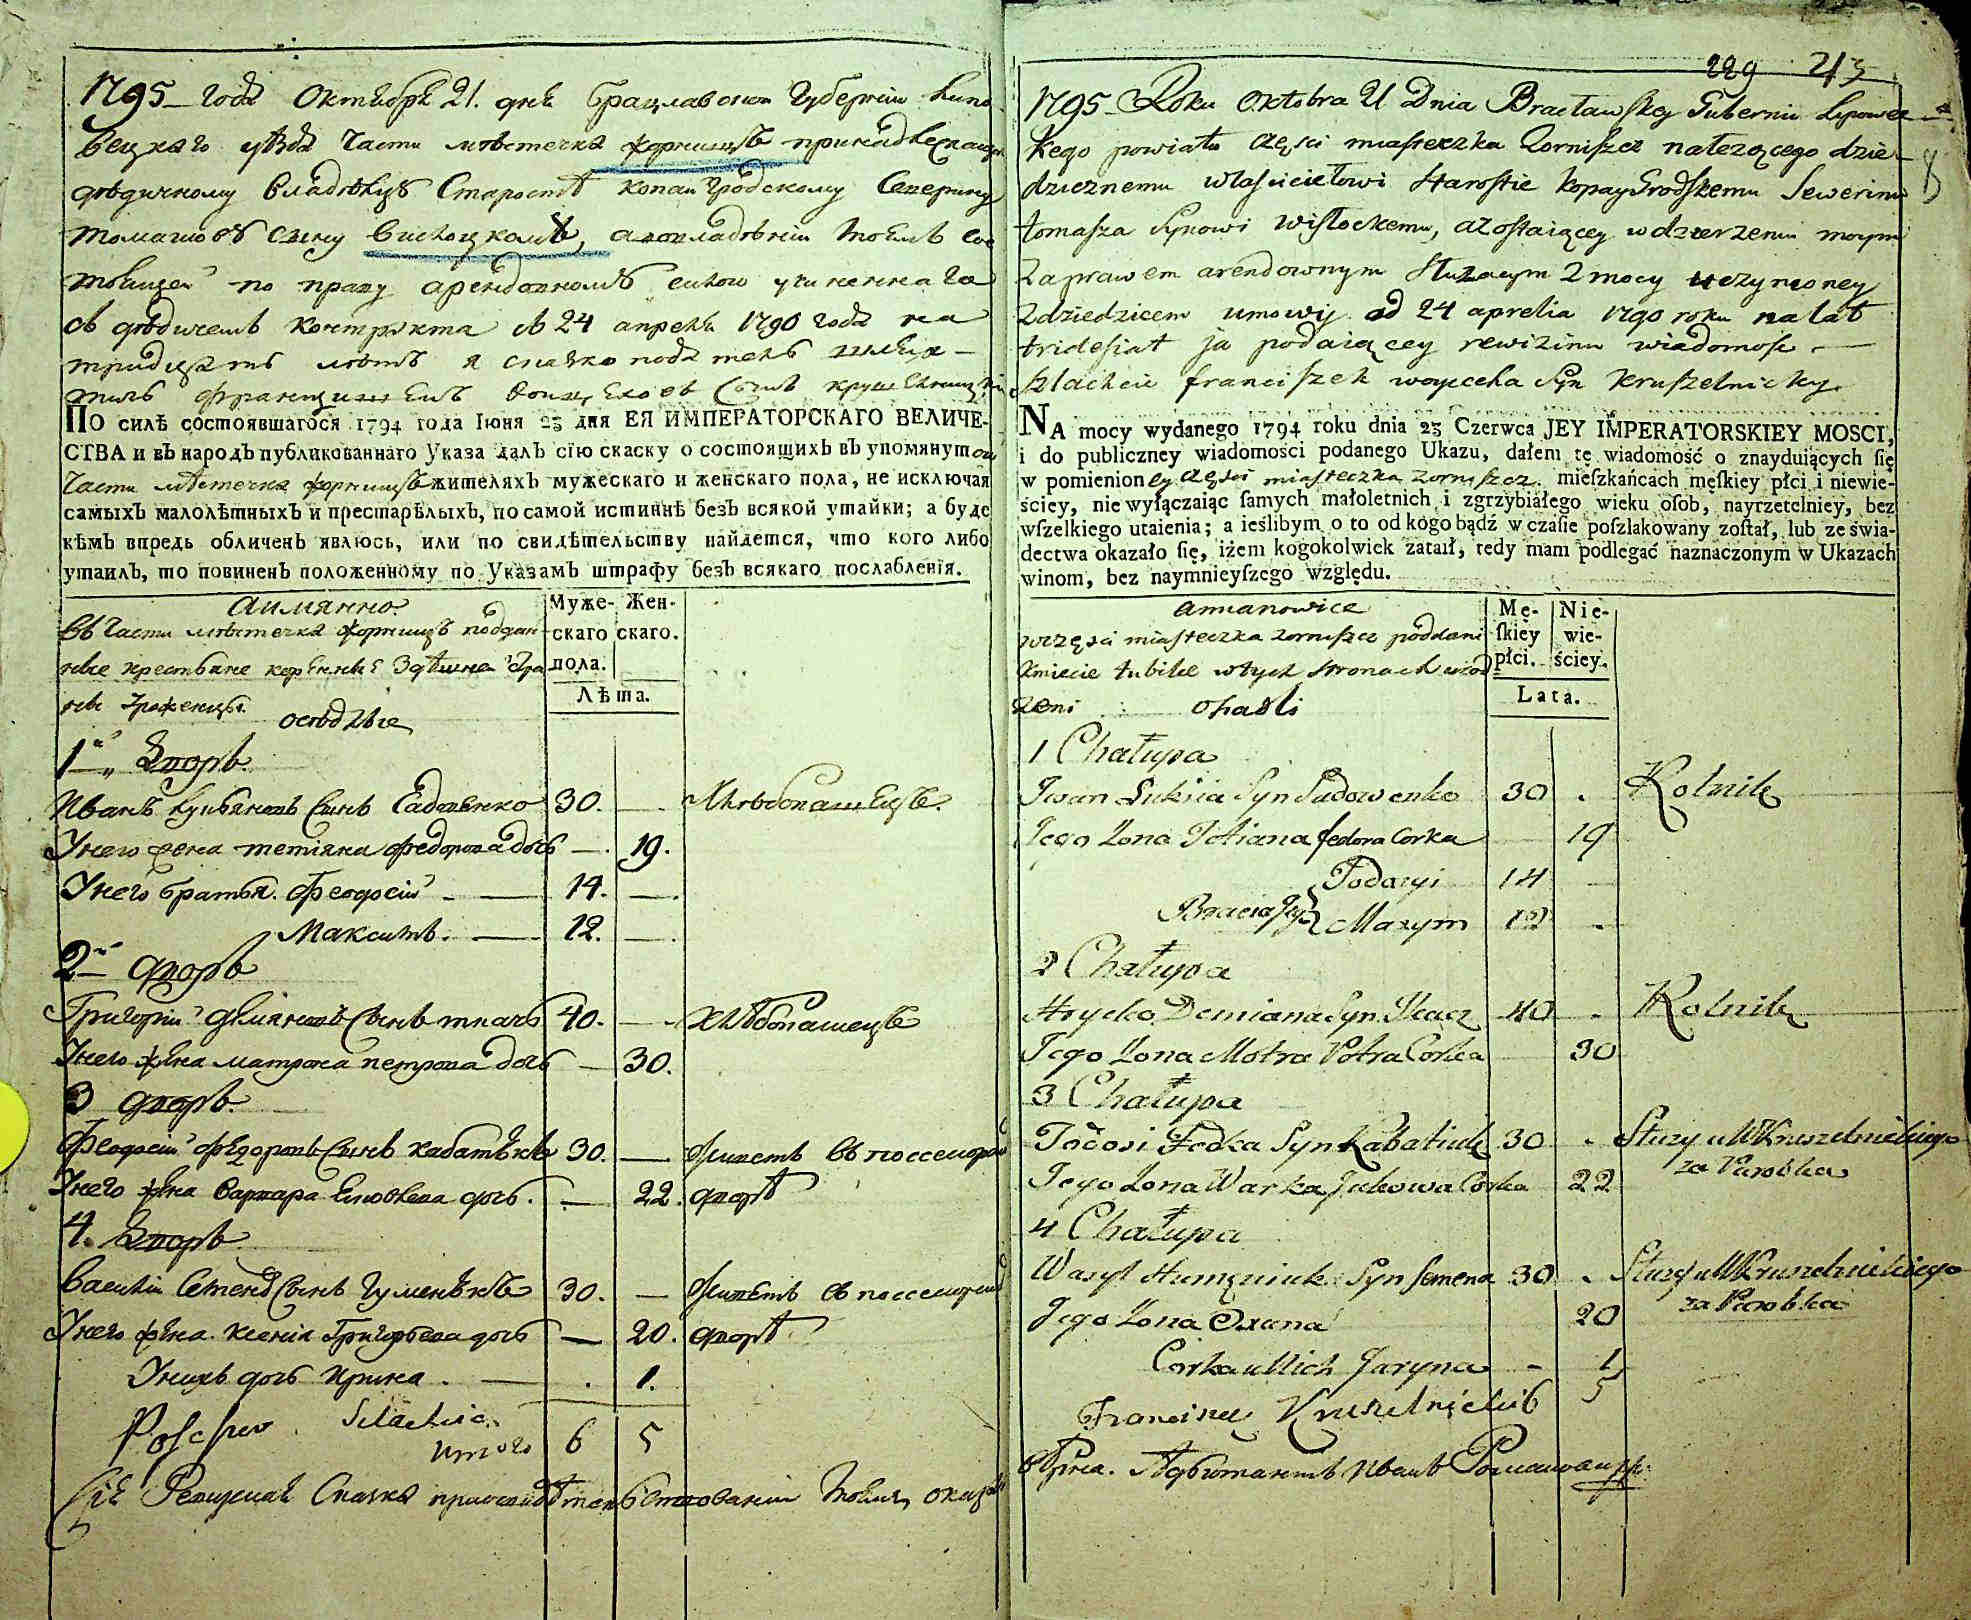 1795 года Октября 21. дня Брацлавской Губернiи Липо-
вецкаго уѣзда Части мѣстечка Жорнищъ принадлежащей
дѣдичному владѣльцу Старостѣ Копайгродскому Северину
Томашову сыну Вислоцкому,
по праву арендовному
съ дѣдичемъ контракта съ 24 апреля 1790 года на
тридцать лѣтъ я сказкоподатель шлях-
тичъ Францишекъ Крушельницкiй
ПО силѣ состоявшагося 1794 года Iюня 23 дня ЕЯ ИМПЕРАТОРСКАГО ВЕЛИЧЕ-
СТВА и въ народъ публикованнаго Указа далъ сiю скаску о состоящихъ въ упомянутой
Части мѣстечка Жорнищъ жителяхъ мужескаго и женскаго пола, не исключая
самыхъ малолѣтныхъ и престарѣлыхъ, по самой истиннѣ безъ всякой утайки; а буде
кѣмъ впредь обличенъ явлюсь, или по свидѣтельству найдется, что кого либо
утаилъ, то повиненъ положенному по Указамъ штрафу безъ всякаго послабленiя.
Аимянно
Въ Части мѣстечка Жорнищъ поддан-
ные крестьяне
Муже-скаго пола.
Жен-скаго.
Лѣта.
осѣдлые
1й Дворъ
Иванъ Лукьяновъ Сынъ Садовенко 30. — Хлебопашецъ.
У него жена Тетiяна Федорова дочь — 19.
У него братья. Феодосiй — 14. —
Максимъ. — 12. —
2й дворъ
Григорiй Демяновъ Сынъ Ткачъ 40. — Хлѣбопашецъ
У него жена Матрона Петрова дочь — 30.
3 дворъ.
Феодосiй Федоровъ Сынъ Кабатюкъ 30. — Служитъ въ поссесорскомъ
У него жена Варвара Яковлева дочь. — 22. дворѣ
4. Дворъ
Василiй Семеновъ Сынъ Гуменюкъ 30. — Служитъ въ поссесорскомъ
У него жена. Ксенiя Григорьева дочь — 20. дворѣ
У нихъ дочь Ирина. — . 1.
Итого 6 5
Сiя Ревизская Сказка
229 243
1795 Roku Oktobra 21 Dnia Bracławskey Gubernii Lipowec-
kego powiatu części miasteczka Zorniszcz należącego dzie-
dzicznemu właścicielowi Staroście Kopaygrodskemu Sewerinu
tomasza Synowi wisłockemu, a zostaiącey w dzierzeniu moym
za prawem arendownym służącym z mocy uczynioney
z dziedzicem umowy od 24 aprelia 1790 roku na lat
tridesiat ja podaiącey rewizinu wiadomość —
szlachcic franciszek woyciecha Syn Kruszelnicky.
NA mocy wydanego 1794 roku dnia 23 Czerwca JEY IMPERATORSKIEY MOSCI,
i do publiczney wiadomości podanego Ukazu, dałem tę wiadomość o znayduiących ſię
w pomienioney części miasteczka zorniszcz mieſzkańcach męſkiey płci i niewie-
ściey, nie wyłączaiąc ſamych małoletnich i zgrzybiałego wieku oſob, nayrzetelniey, bez
wſzelkiego utaienia; a ieślibym o to od kogo bądź w czaſie poſzlakowany zoſtał, lub ze świa-
dectwa okazało ſię, iżem kogokolwiek zataił, tedy mam podlegać naznaczonym w Ukazach
winom, bez naymnieyſzego względu.
amianowice
w części miasteczka zorniszcz poddani
kmiecie tubilce w tych stronach urod-
zoni osadli
Mę-ſkiey płci.
Nie-wie-ściey.
Lata.
1 Chałupa
Iwan Łukiia Syn Sadowenko 30 . Rolnik
Jego Zona Tetiana fedora Corka 19
Todozyi 14 —
Bracia Jego Maxym 12 .
2 Chałupa
Hrycko Demiana Syn Tkacz 40 . Rolnik
Jego Zona Motra Petra Corka 30
3 Chałupa
Todosi Fedka Syn Kabatiuk 30 . Służy u W Kruszelnickiego
za Parobka
Jego Zona Warka Jakowa Corka 22
4 Chałupa
Wasyl Humeniuk Syn Semena 30 . Służy u W Kruszelnickiego
za Parobka
Jego Zona Oxena 20
Corka u Nich Jaryna - 1
Franciszek Kruszelnicki 6 5
Адъютантъ Иванъ Романовичъ